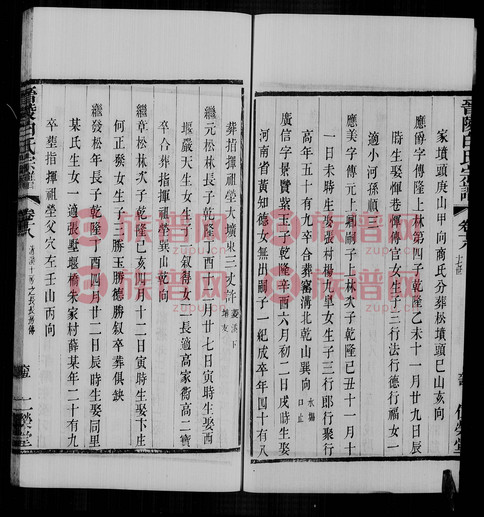 晉陵白氏宗譜 卷八
家墳頭庚山甲向商氏分葬松墳頭巳山亥向
應爵字傳隆上林第四子乾隆乙未十一月廿九日辰
時生娶惲巷惲傳官女生子三行法行德行福女一
適小河孫順
應美字傳元上嗣子上林次子乾隆己丑十一月十
一日未時生娶張村楊九皐女生子三行郎行聚行
高年五十有九合葬竈溝北乾山巽向
廣信字景賢紫玉子乾隆辛酉六月初二日戌時生娶
河南省黃知德女無出嗣子一紀成卒年四十有八
葬指揮祖塋大墳東三丈許
繼元松林長子乾隆丁酉十一月廿七日寅時生娶西
堰嚴天生女生子一叙得女二長適高家衖高二寶
卒合葬指揮祖塋巽山乾向
繼章松林次子乾隆己亥十月十二日寅時生娶卞庄
何正榮女生子三勝玉勝德勝叙卒葬俱缺
繼發松年長子乾隆丁酉四月廿二日辰時生娶同里
某氏生女一適張墅堰橋朱家村薛某年二十有九
卒墓指揮祖塋父穴左壬山丙向
晉陵白氏宗譜 卷八
族谱网
zupu.cn